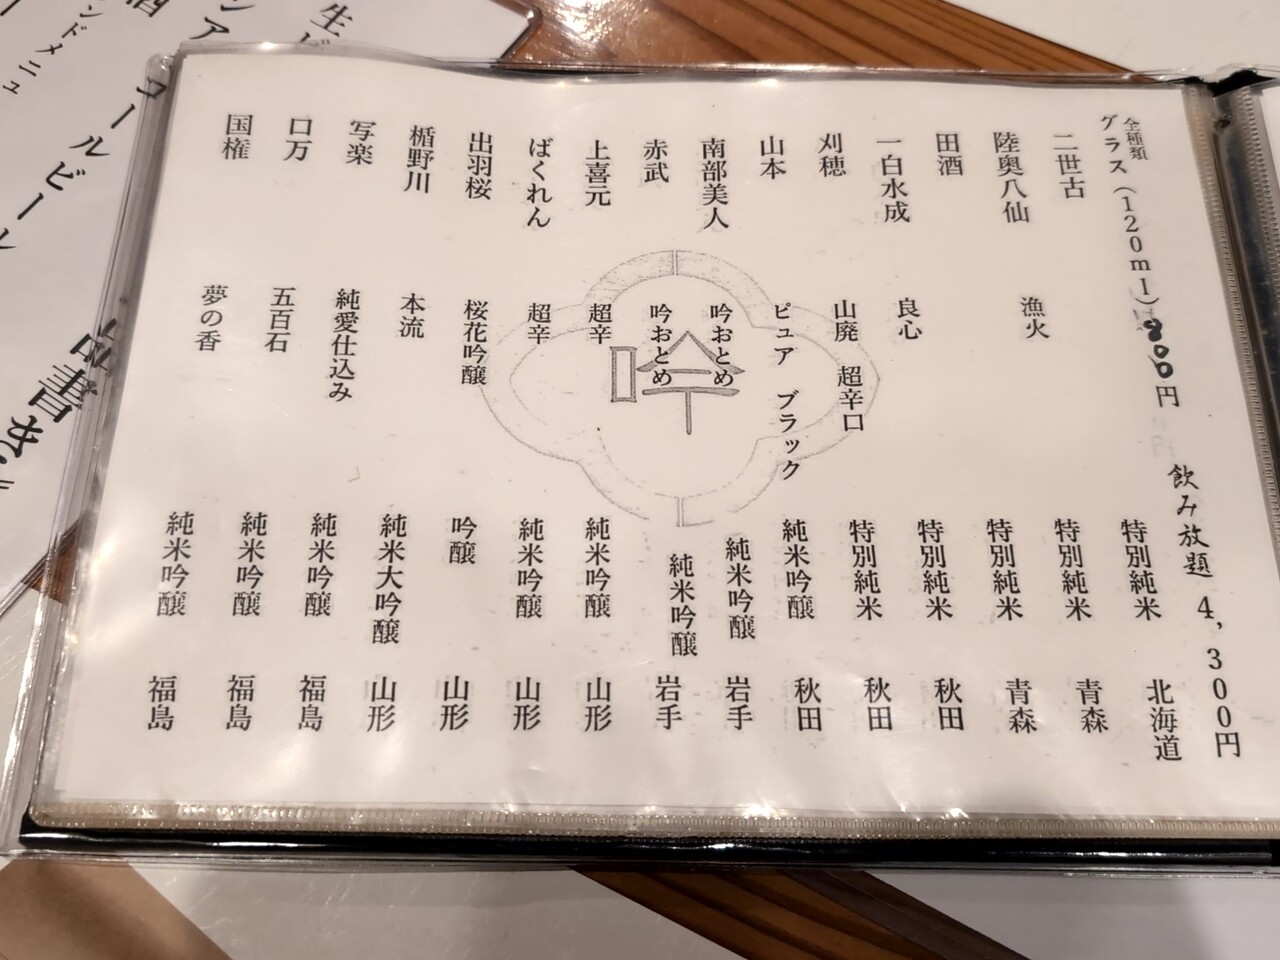 全種類
グラス（120ml）は800円 飲み放題 4,300円
二世古 特別純米 北海道
陸奥八仙 漁火 特別純米 青森
田酒 特別純米 青森
一白水成 良心 特別純米 秋田
刈穂 山廃 超辛口 特別純米 秋田
山本 ピュア ブラック 純米吟醸 秋田
南部美人 吟おとめ 純米吟醸 岩手
赤武 吟おとめ 純米吟醸 岩手
上喜元 超辛 純米吟醸 山形
ばくれん 超辛 純米吟醸 山形
出羽桜 桜花吟醸 吟醸 山形
楯野川 本流 純米大吟醸 山形
写楽 純愛仕込み 純米吟醸 福島
口万 五百石 純米吟醸 福島
国権 夢の香 純米吟醸 福島
吟
生ビ
ンドメニュ
コールビール
品書き